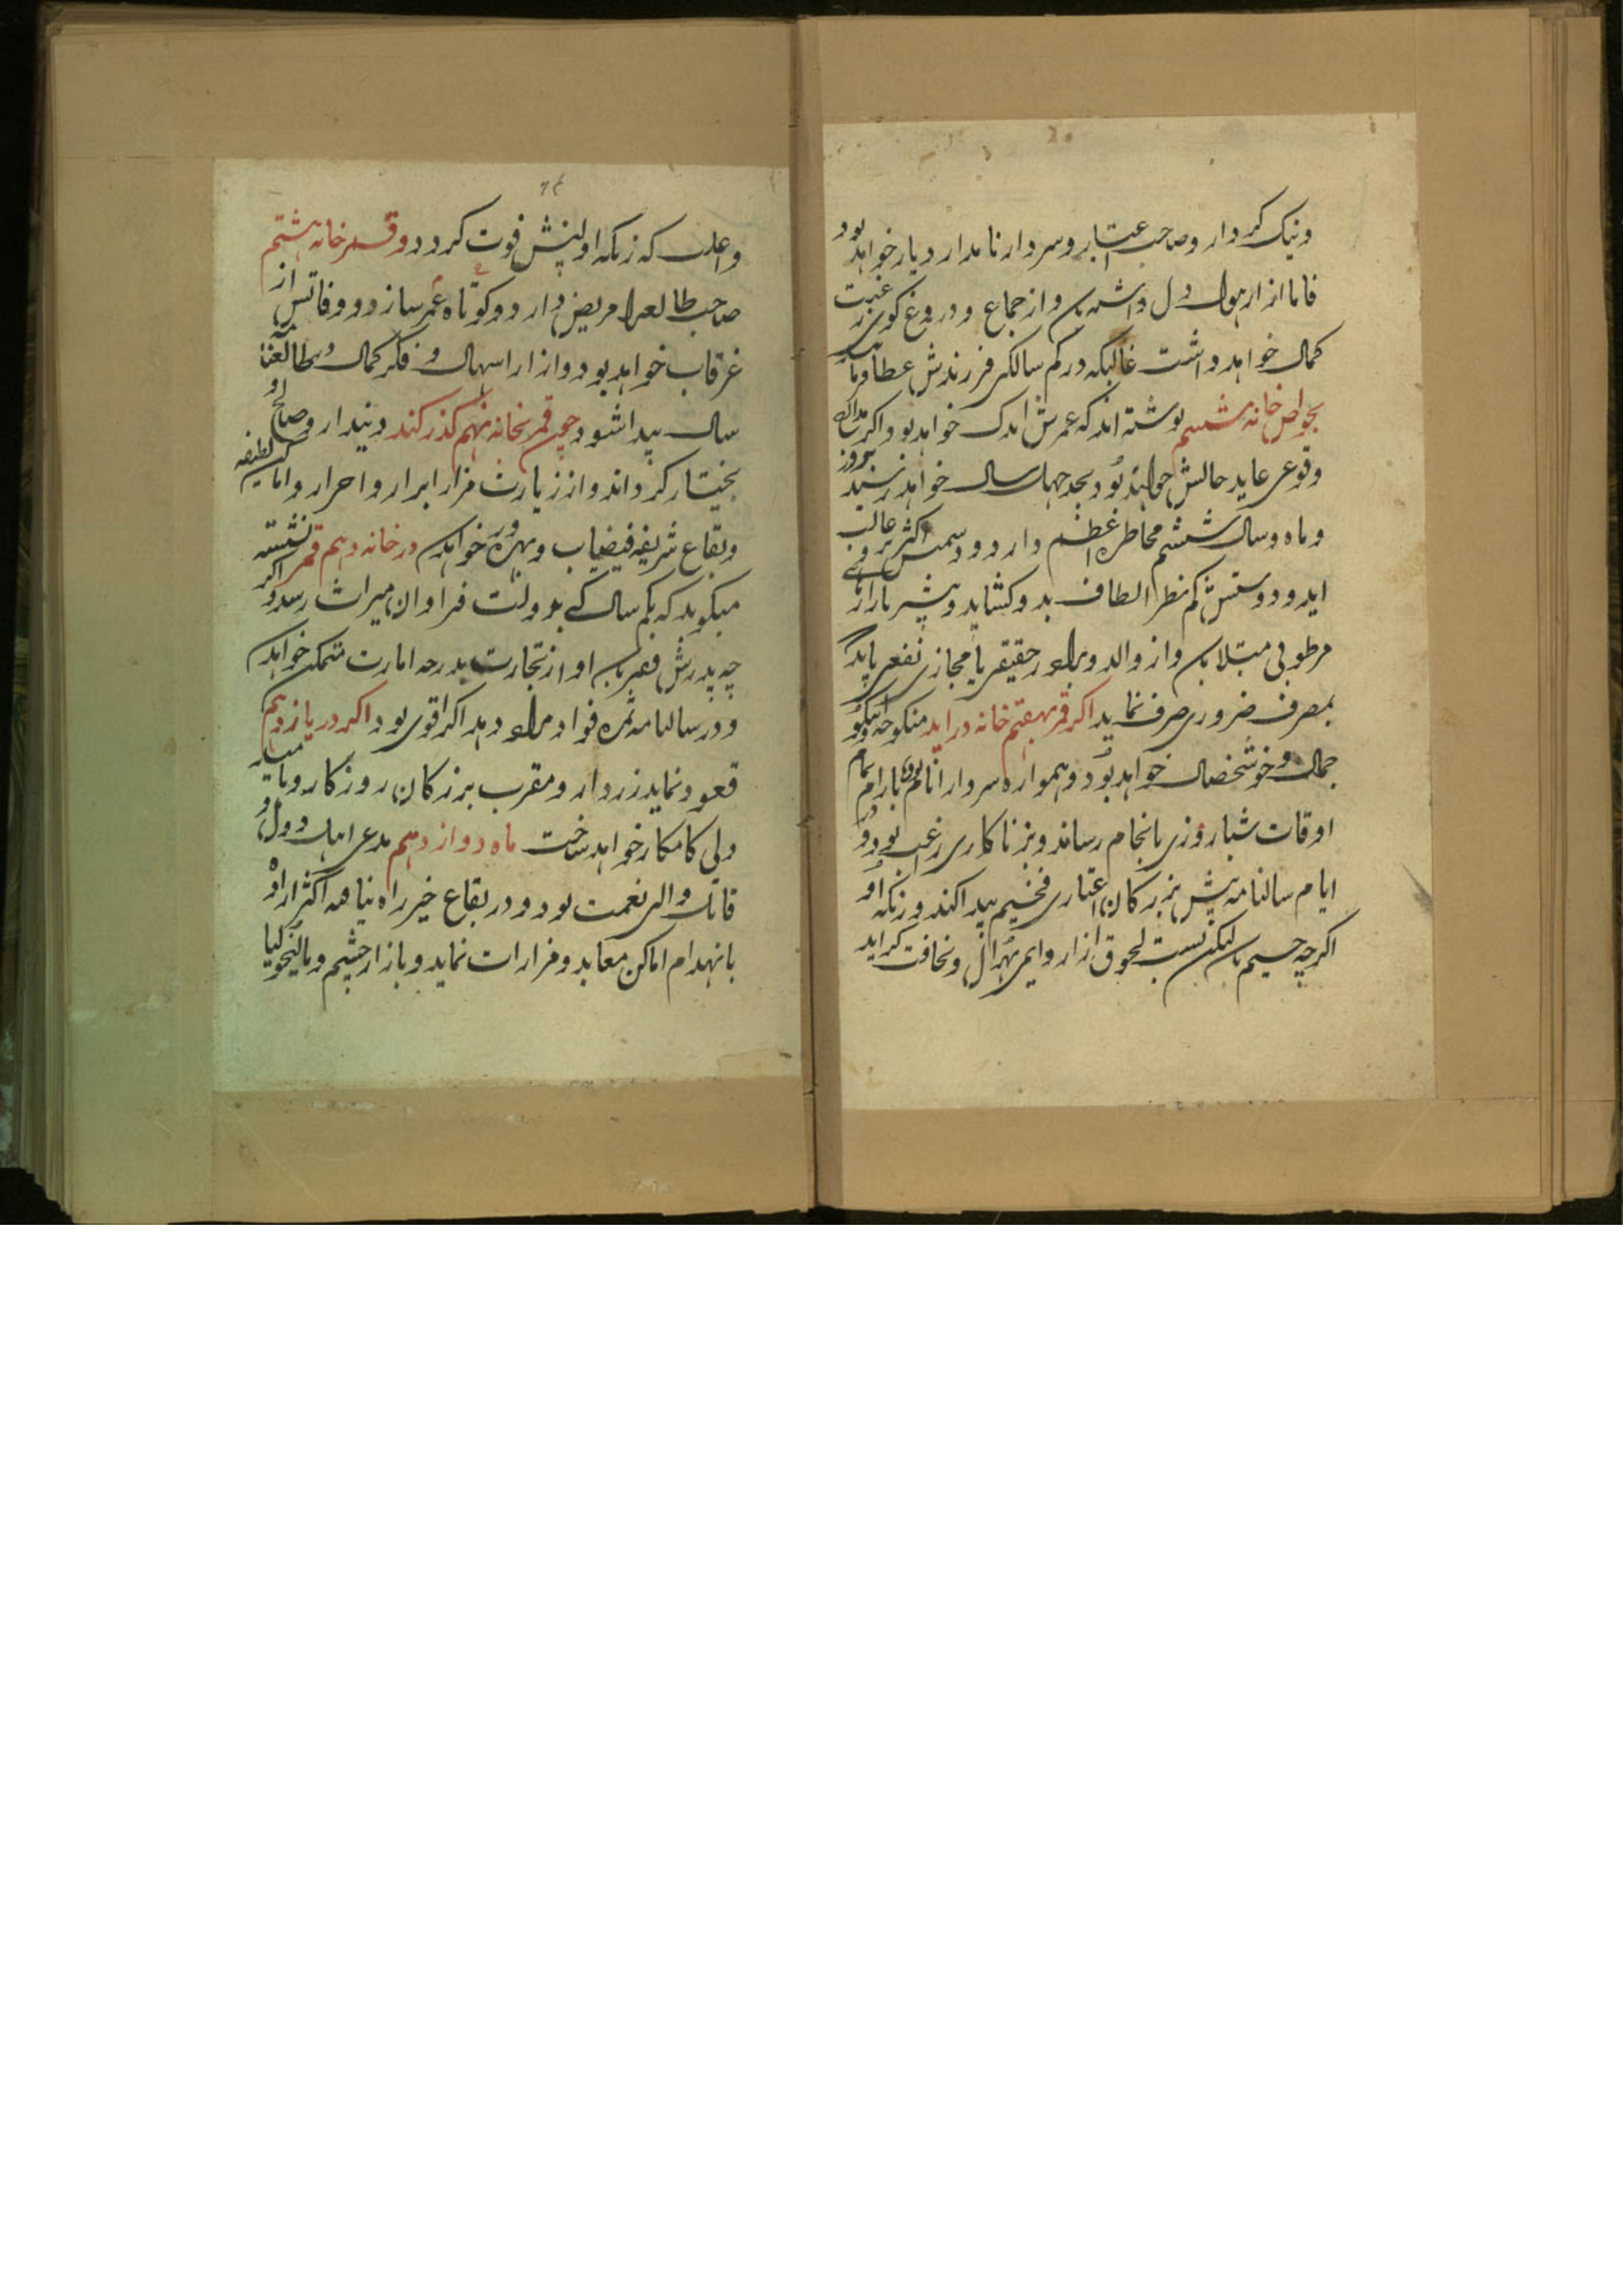 ونیک کردار وصاحب اعتبار وسردار نامدار دیار خواهد بود
فاما ازار هول دل داشته باشد واز جماع ودروغ کوی رغبت
کمال خواهد داشت غالبکه در کم سالکی فرزندش عطا فرماید
بخواص خانه ششم نوشته اند که عمرش اندک خواهد بود واکر
وقوعی عاید حالش خواهد بود بحد چهل سال خواهد رسید
وماه وسال ششم مخاطره اعظم دارد ودشمنش اکثر بر غالب
اید ودوستش کم نظر الطاف بدو کشاید وبیشتر بازار
مرطوبی مبتلا باشد واز والد وبرادر حقیقی یا مجازی نفعی یابد که
بمصرف ضروری صرف نماید اکر قمر بهفتم خانه دراید منکوحه او نیکو
جمال وخوشخصال خواهد بود وهمواره سردار انام بود بارام تمام
اوقات شباروزی بانجام رساند وبزناکاری رغب بود ودر
ایام سالنامه پیش بزرکان اعتباری فخیم پیدا کند وزنکه او
اکرچه جسیم باشد لیکن بسبب لحوق ازار دایمی بهزال ونحافت کراید
واغلب که زنکه اولینش فوت کردد وقمر خانه هشتم
صاحب طالعرا مریض دارد وکوتاه عمر سازد ووفاتش از
غرقاب خواهد بود واز ازار اسهال وفکر کمال وبطالعه
سال پیدا شود چون قمر بخانه نهم کذر کند دیندار وصالح او
بختیار کرداند واز زیارت مزار ابرار واحرار واماکن لطیفه
وبقاع شریفه فیضیاب وبهره ور خواهد شد در خانه دهم قمر نشسته
میکوید که بکم سالکی بدولت فراوان میراث رسد واکر
چه پدرش فقیر باشد او از تجارت بدرجه امارت متمکن خواهد شد
ودر سالنامه ثمره فواد مراد دهد اکر قوی بود اکر در یازدهم
قعود نماید زردار ومقرب بزرکان روزکار وبا
ولی کامکار خواهد ساخت ماه دوازدهم مدعی اهل دول و
قاتل والی نعمت بود ودر بقاع خیر راه نیابد اکثر اراده او
بانهدام اماکن معابد ومزارات نماید وبازار چشم ومالیخولیا